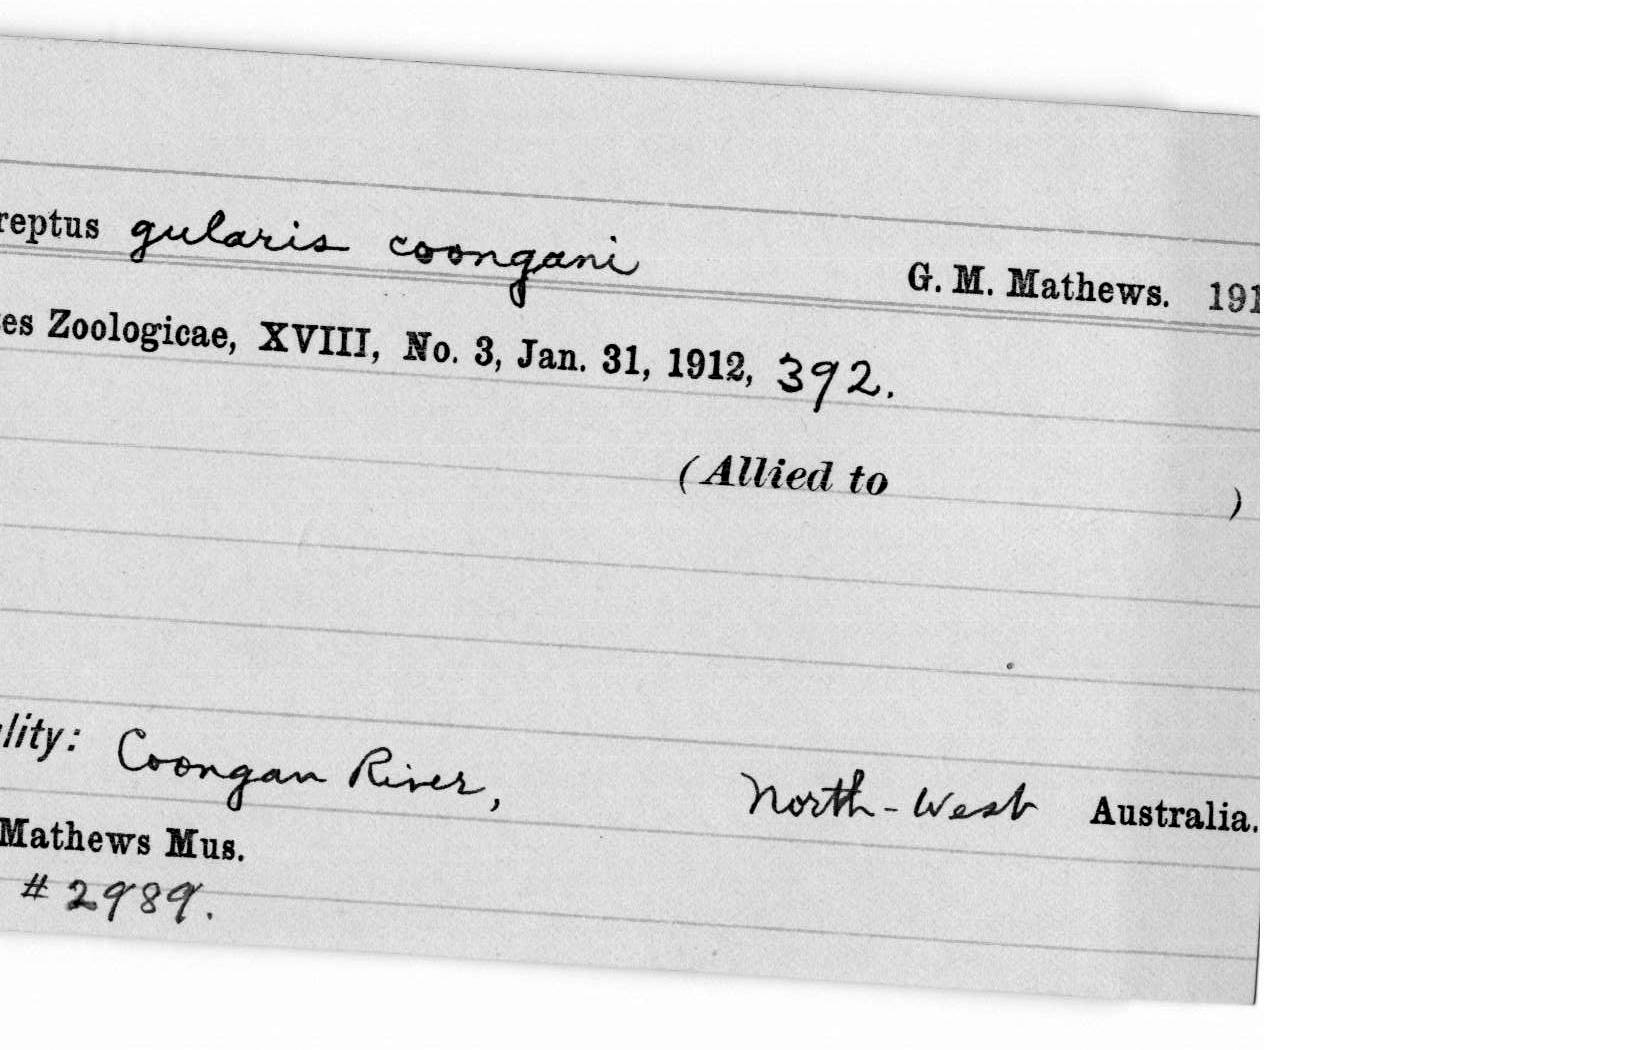 reptus gularis coongani G. M. Mathews. 191
es Zoologicae, XVIII, No. 3, Jan. 31, 1912, 392.
(Allied to )
lity: Coongan River, North-West Australia.
Mathews Mus.
# 2989.